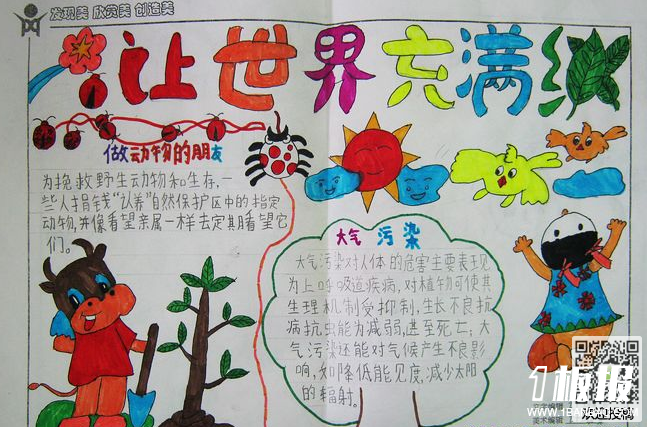 发现美 欣赏美 创造美
让世界充满绿
做动物的朋友
为挽救野生动物和生存,一
些人捐钱“认养”自然保护区中的指定
动物,并像看望亲属一样去定期看望它
们。
大气 污染
大气污染对人体的危害主要表现
为上呼吸道疾病,对植物可使其
生理机制受抑制,生长不良抗
病抗虫能力减弱,甚至死亡;大
气污染还能对气候产生不良影
响,如降低能见度,减少太阳
的辐射。
1板报
WWW.1BANBAO.COM
美术编辑